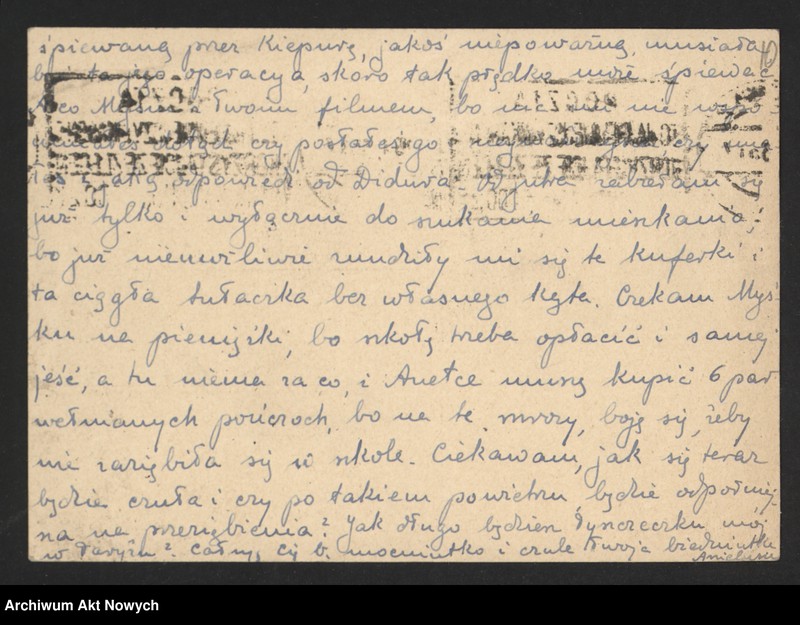 śpiewaną przez Kiepurę, jakoś niepoważną, musiała
być ta jego operacya, skoro tak prędko może śpiewać
A co Myśku z Twoim filmem, bo nic mi nie
dotąd czy posłałeś go i czy
odpowiedź od Didura. Od jutra zabieram się
już tylko i wyłącznie do szukania mieszkania,
bo już niemożliwie znudziły mi się te kuferki i
ta ciągła tułaczka bez własnego kąta. Czekam Myś-
ku na pieniążki, bo szkołę trzeba opłacić i samej
jeść, a tu niema za co, i Anełce muszę kupić 6 par
wełnianych pończoch, bo na te mrozy, boję się, żeby
mi nie zaziębiła się w szkole. Ciekawam, jak się teraz
będzie czuła i czy po takiem powietrzu będzie odporniej-
na na przeziębienia? Jak długo będziesz Synczeczku mój
w Paryżu? Całuję Cię b. mocniutko i czule Twoja biedniutka
Archiwum Akt Nowych